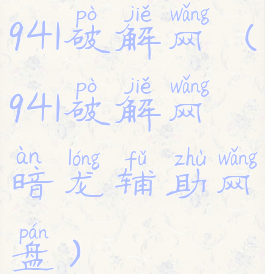 pò jiě wǎng
941破解网（
pò jiě wǎng
941破解网
àn lóng fǔ zhù wǎng
暗龙辅助网
pán
盘）